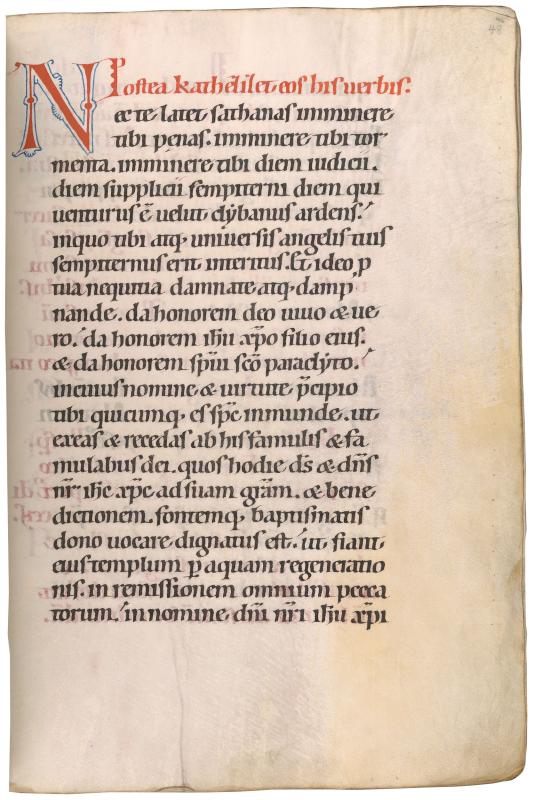 48
Postea kathezilet eos his uerbis.
Nec te latet sathanas imminere
tibi penas. imminere tibi tor
menta. imminere tibi diem iudicii.
diem supplicii sempiterni diem qui
uenturus ē uelut clybanus ardens.
inquo tibi atq; uniuersis angelis tuis
sempiternus erit interitus. Et ideo ꝓ
tua nequitia damnate atq; damp
nande. da honorem deo uiuo & ue
ro. da honorem ihū xp̄o filio eius.
& da honorem sp̄ui sc̄o paraclyto.
incuius nomine & uirtute p̄cipio
tibi quicumq; es sp̄c inmunde. ut
exeas & recedas ab his famulis & fa
mulabus dei. quos hodie ds̄ & dn̄s
nr̄ ihc xp̄c ad suam grām. & bene
dictionem. fontemq; baptismatis
dono uocare dignatus est. ut fiant
eius templum ꝑ aquam regeneratio
nis. in remissionem omnium pecca
torum. in nomine dn̄i nr̄i ihū xp̄i